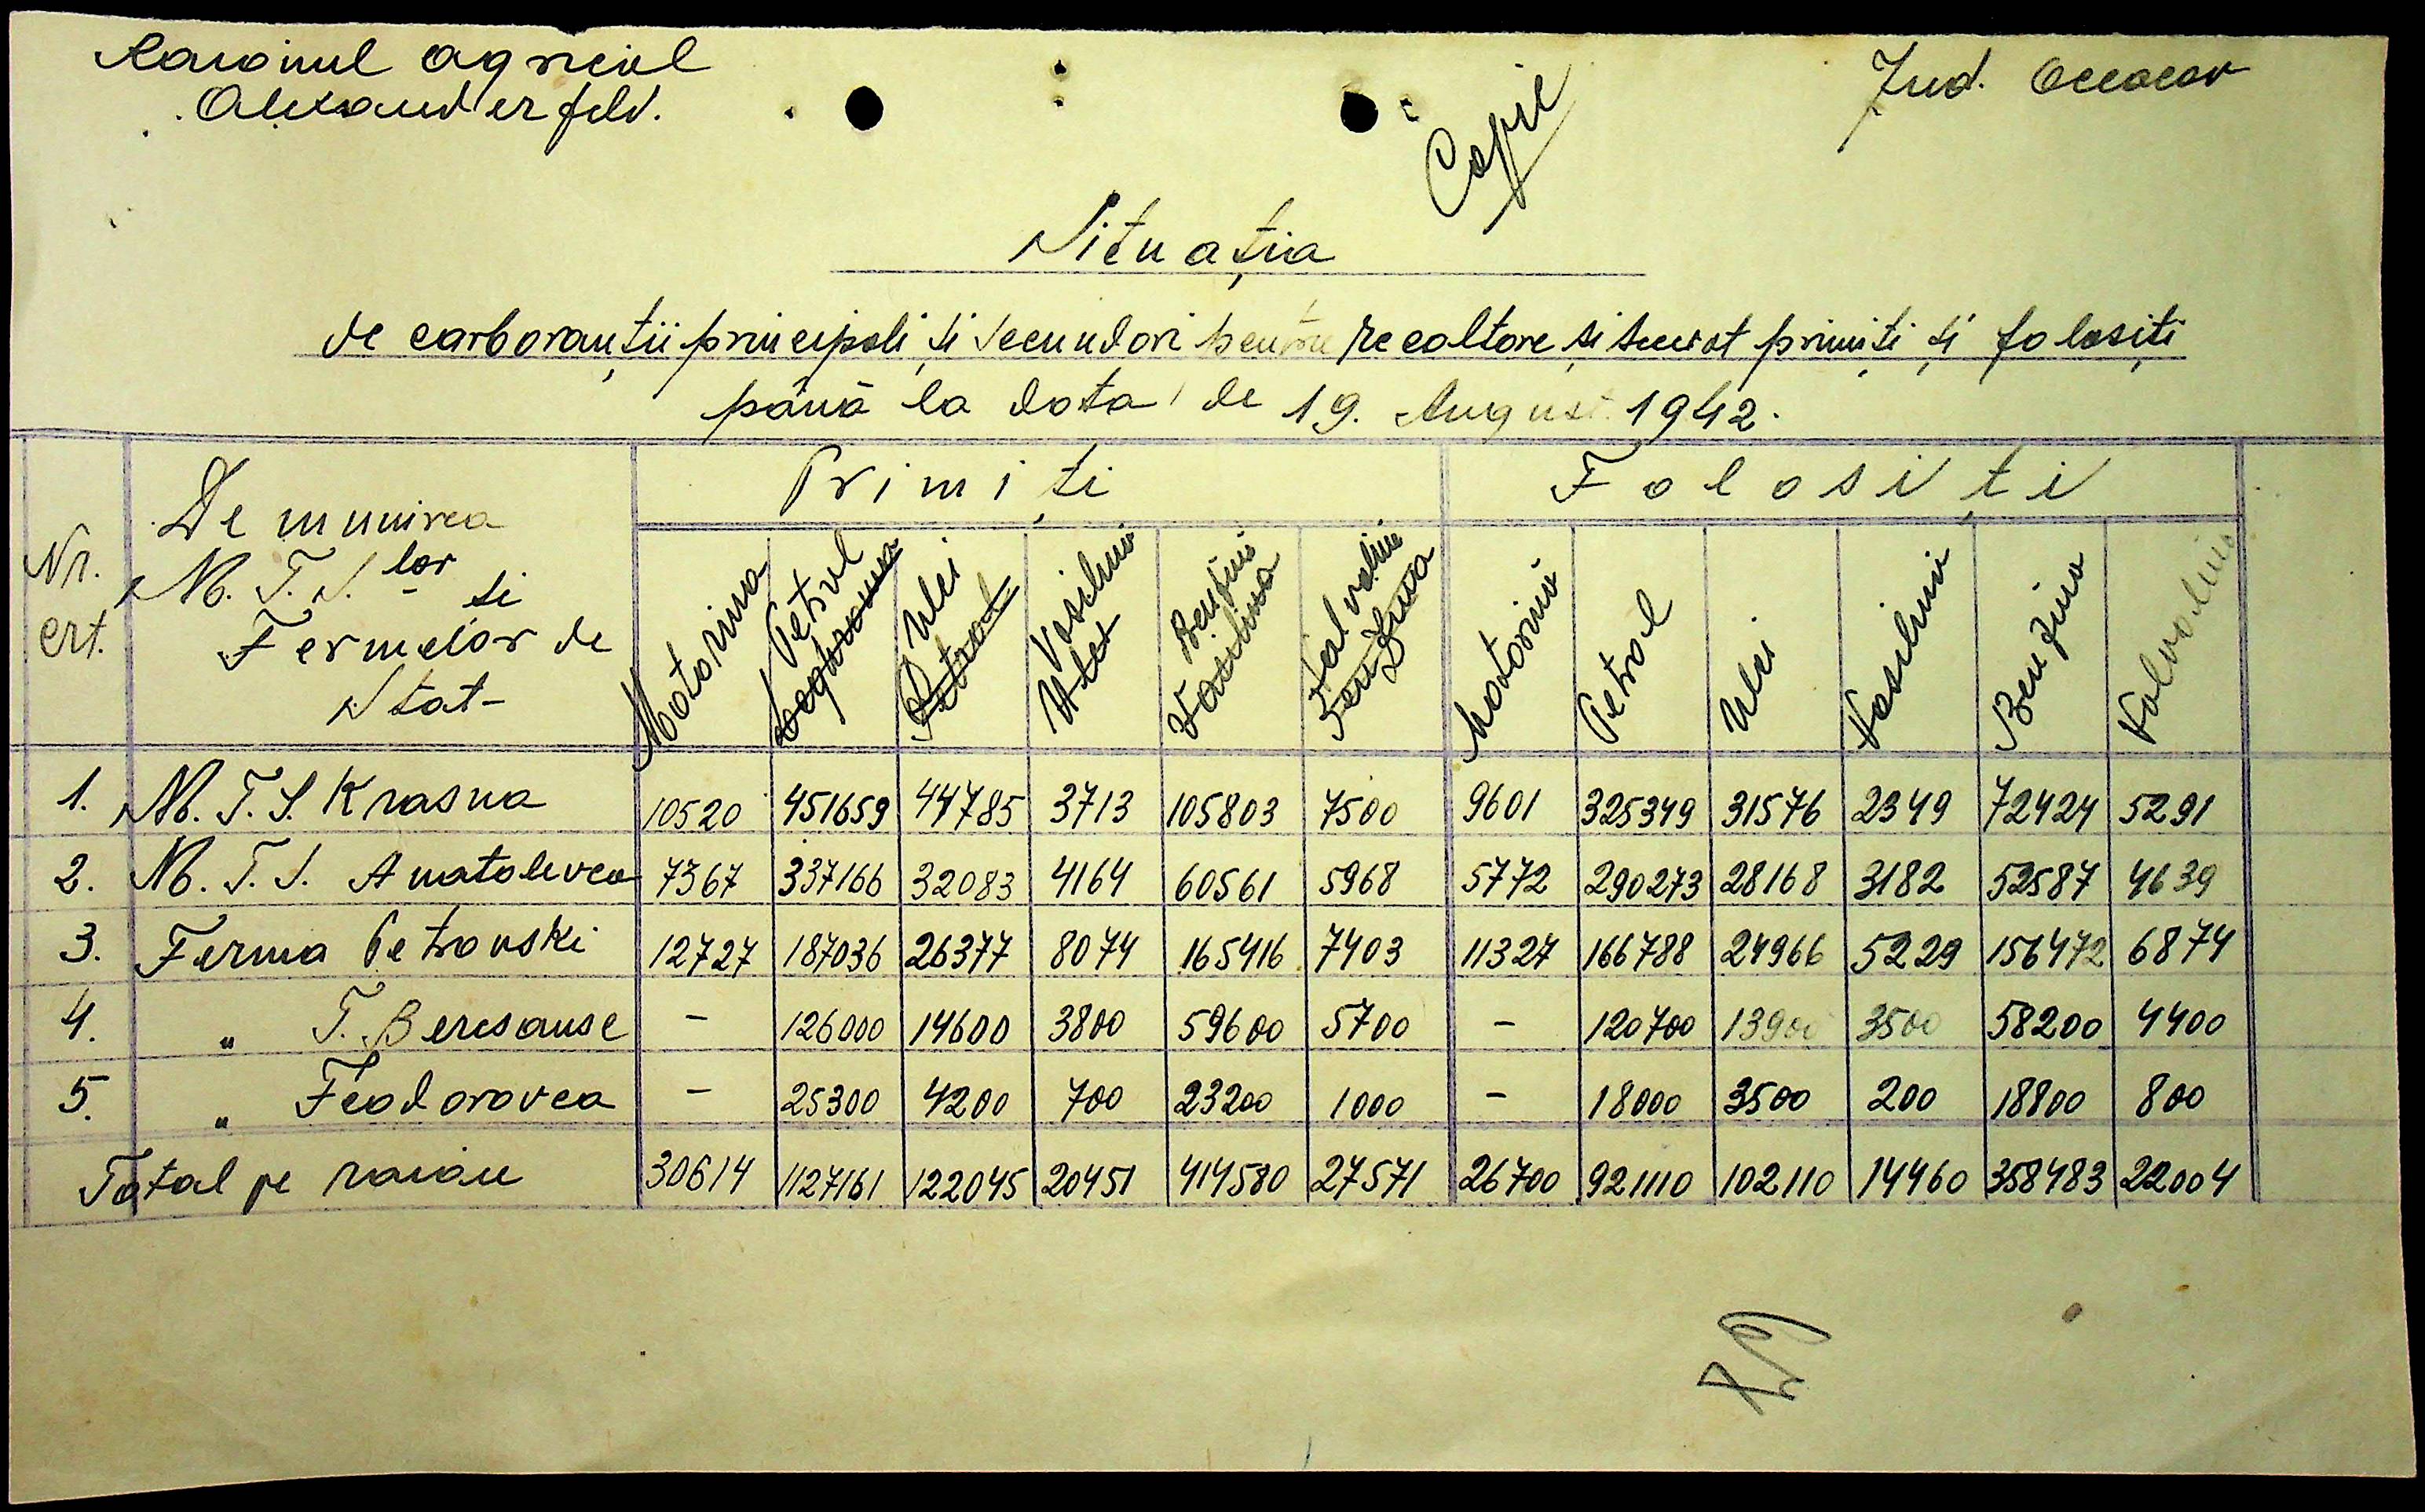 Raionul agricol
Alexanderfeld.
Jud. Oceacov
Copie
Situația
de carboranții principali și secundari pentru recoltare și treerat primiți și folosiți
până la data de 19. August 1942.
Nr. crt. | Denumirea M.T.S. lor si Fermelor de Stat- | Primiți | Folosiți
Motorina | Petrol | Ulei Petrol | Vaselina Ulei | Benzina Vaselina | Valvalina Benzina | Motorina | Petrol | Ulei | Vaselina | Benzina | Valvolina
1. M.T.S. Krasna 10520 451659 44785 3713 105803 7500 9601 325349 31576 2349 72424 5291
2. M.T.S. Anatolevca 7367 337166 32083 4164 60561 5968 5772 290273 28168 3182 52587 4639
3. Ferma Petrovski 12727 187036 26377 8074 165416 7403 11327 166788 24966 5229 156472 6874
4. " T. Beresanse - 126000 14600 3800 59600 5700 - 120700 13900 3500 58200 4400
5. " Feodorovca - 25300 4200 700 23200 1000 - 18000 3500 200 18800 800
Total pe raion 30614 1127161 122045 20451 414580 27571 26700 921110 102110 14460 358483 22004